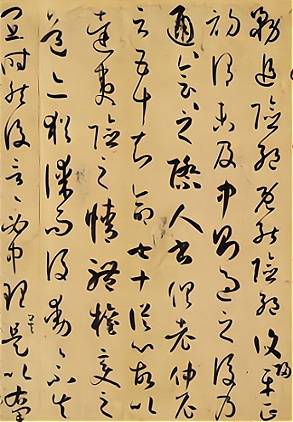 務追險絕既能險絕復歸平正
初謂未及中則過之後乃
通會之際人書俱老仲尼
云五十知命七十從心故以
達夷險之情體權變之
道亦猶謀而後動〻不失
宜時然後言〻必中理矣是以右軍